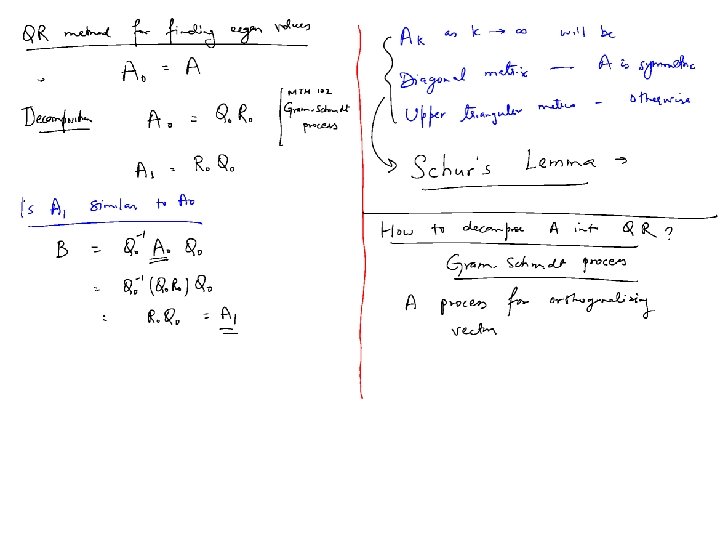 QR method for finding eigen values
A₀ = A
Decomposition A₀ = Q₀R₀ [MTH 102
Gram-Schmidt
process
A₁ = R₀Q₀
Is A₁ similar to A₀
B = Q₀⁻¹ A₀ Q₀
= Q₀⁻¹ (Q₀R₀) Q₀
= R₀Q₀ = A₁
Aₖ as k → ∞ will be
Diagonal matrix — A is symmetric
Upper triangular matrix - otherwise
→ Schur's Lemma →
How to decompose A into QR?
Gram-Schmidt process
A process for orthogonalising
vectors